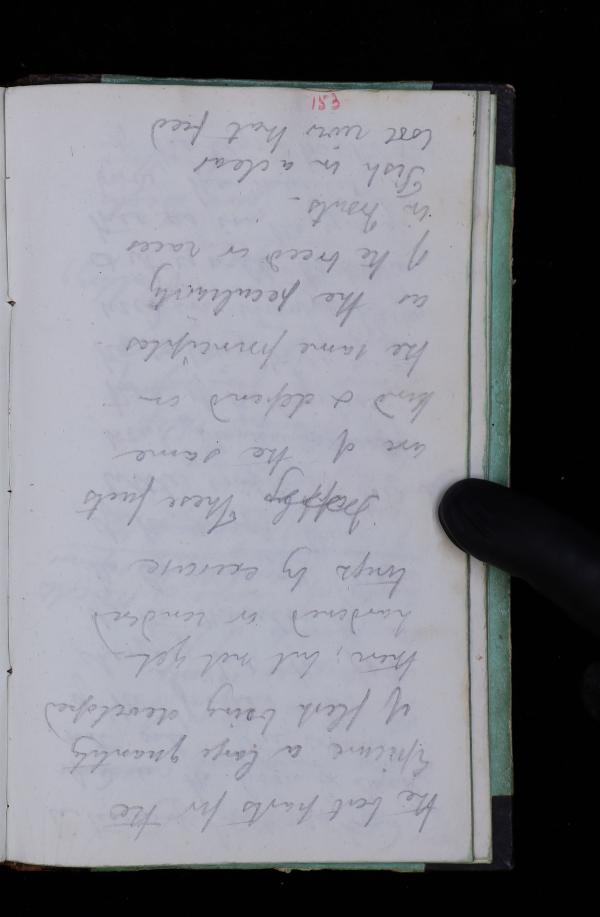 153
the best parts for the
Epicure a large quantity
of flesh being developed
then; but not yet
hardened or rendered
by exercise
These facts
are of the same
kind & depend on
the same principles
as the peculiarity
of the breed or races
in trouts -
Fish in a clear
river that feed